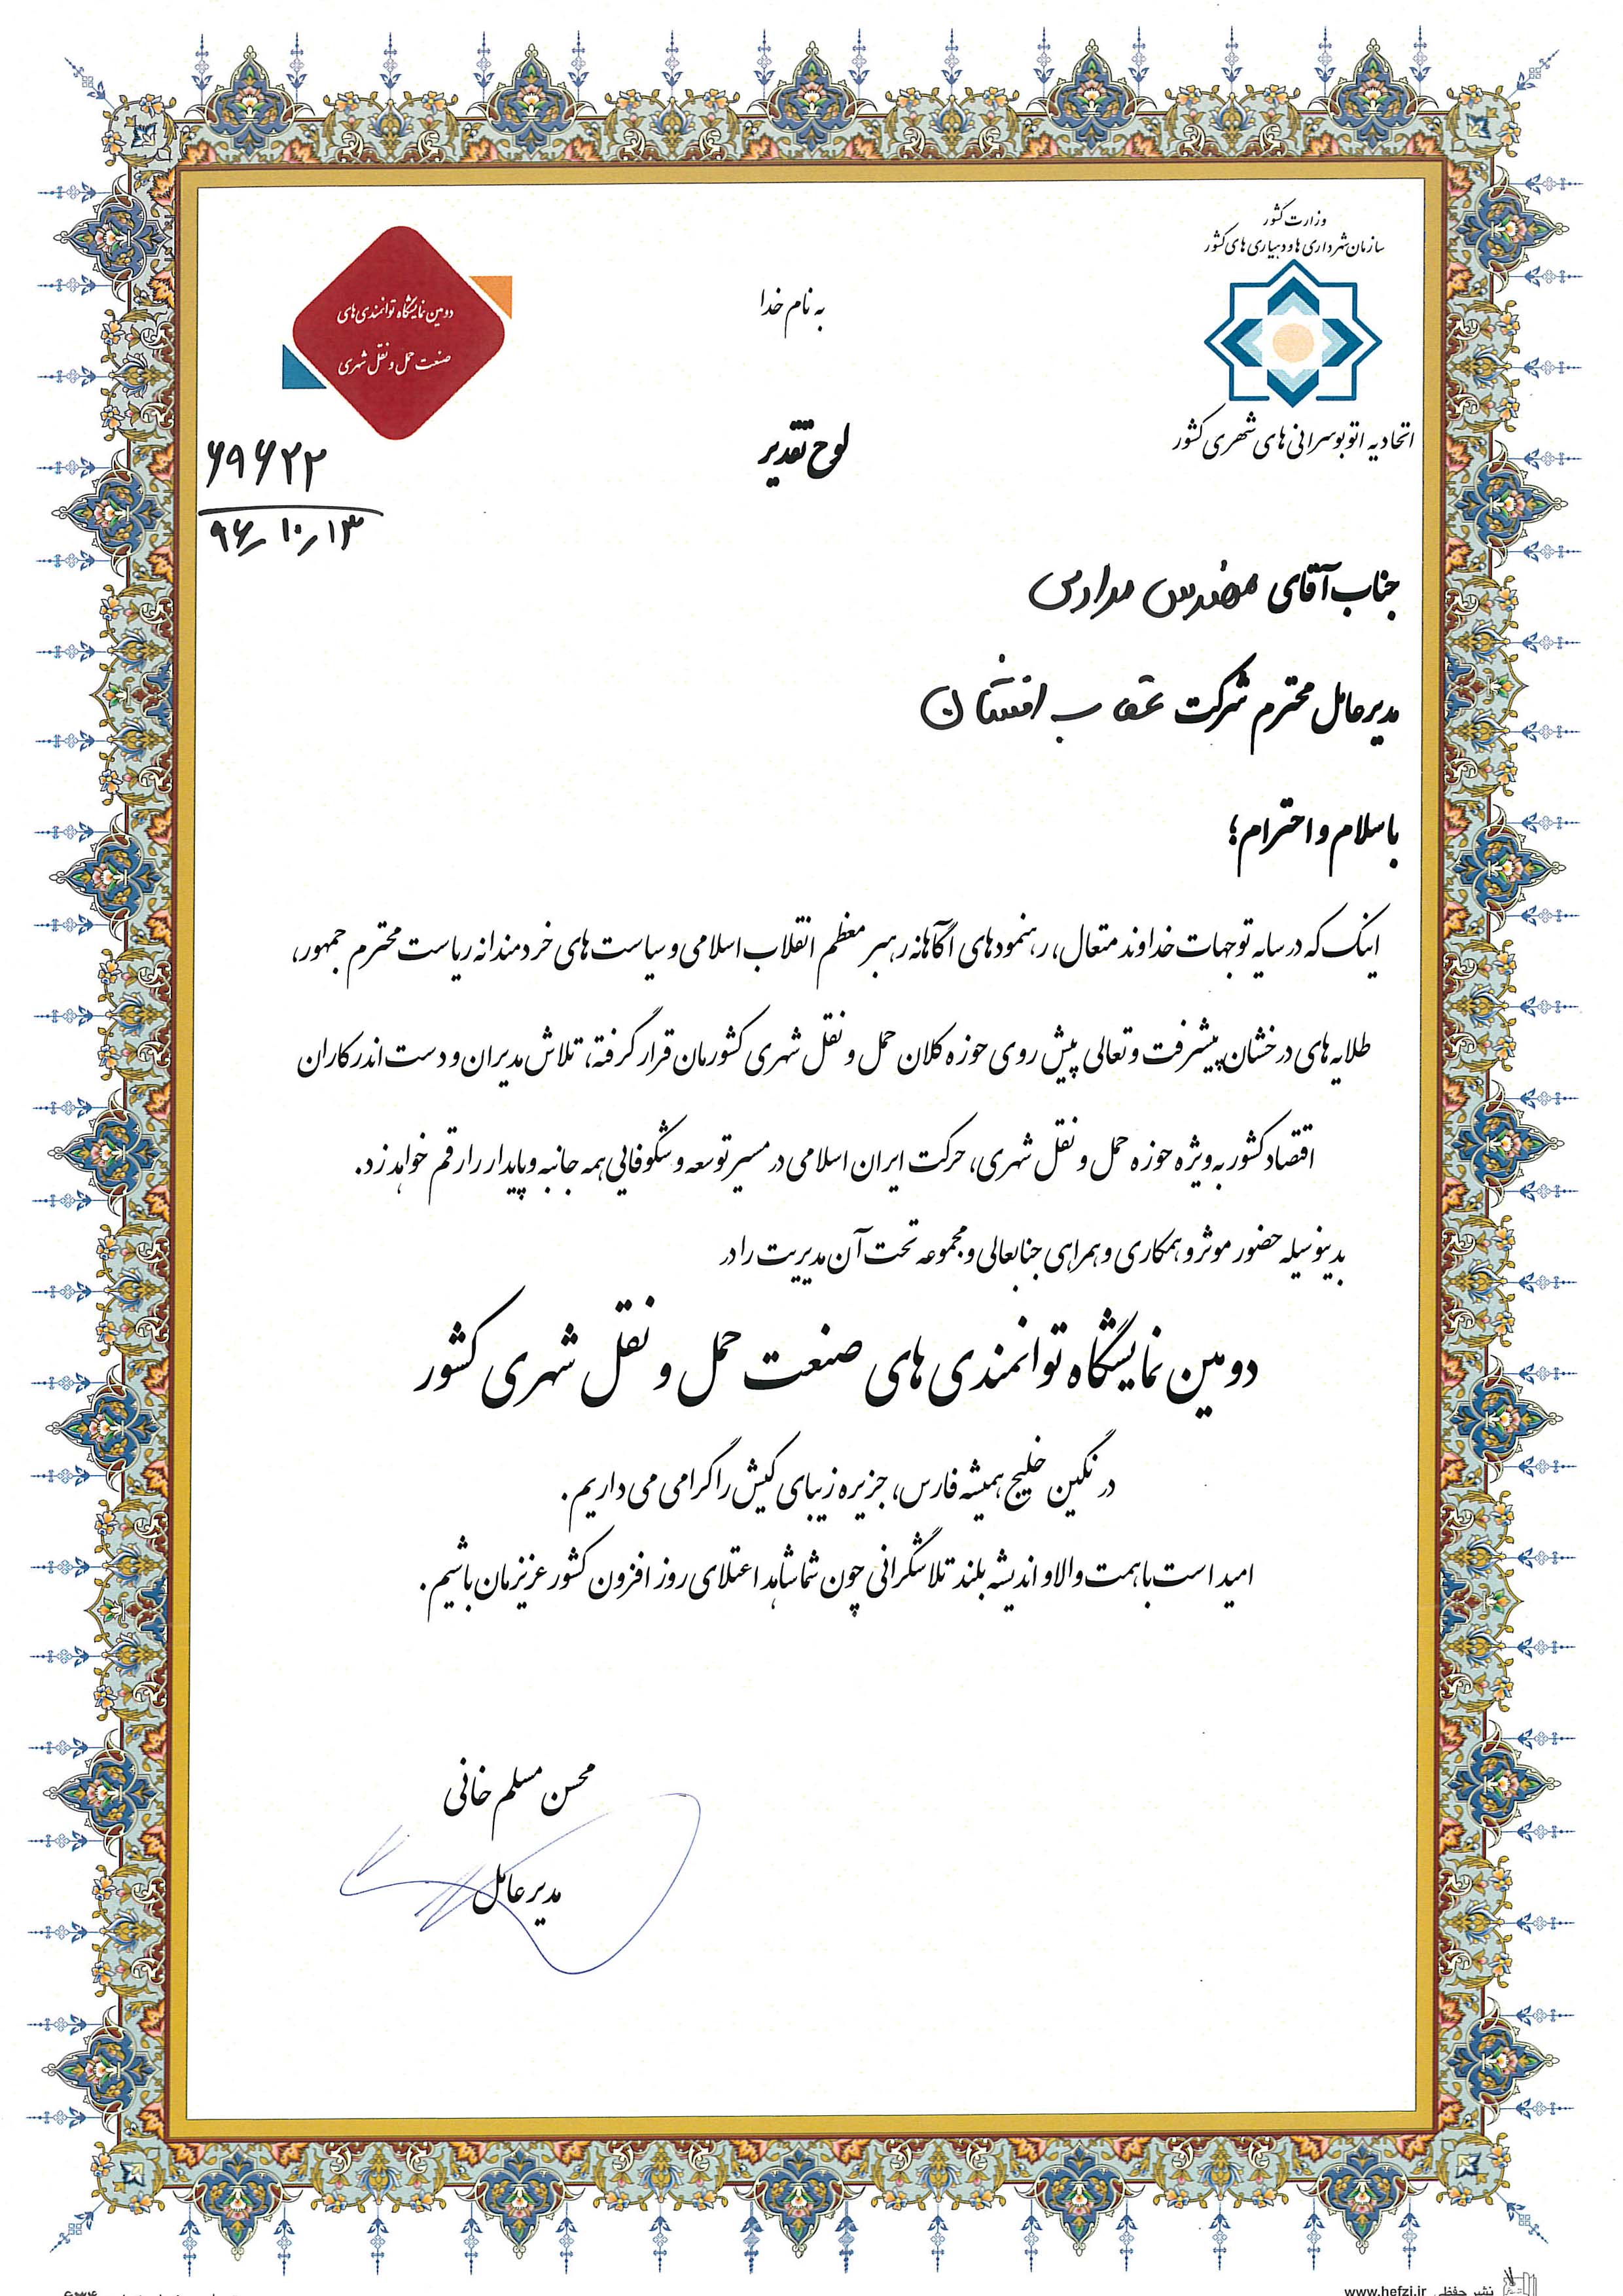 وزارت کشور
سازمان شهرداری ها و دهیاری های کشور
اتحادیه اتوبوسرانی های شهری کشور
به نام خدا
لوح تقدیر
دومین نمایشگاه توانمندی های
صنعت حمل و نقل شهری
۶۹۶۲۲
۹۶٫۱۰٫۱۳
جناب آقای مهندس مرادی
مدیرعامل محترم شرکت عقاب افشان
با سلام و احترام؛
اینک که در سایه توجهات خداوند متعال، رهنمودهای آگاهانه رهبر معظم انقلاب اسلامی و سیاست های خردمندانه ریاست محترم جمهور،
طلایه های درخشان پیشرفت و تعالی پیش روی حوزه کلان حمل و نقل شهری کشورمان قرار گرفته، تلاش مدیران و دست اندرکاران
اقتصاد کشور به ویژه حوزه حمل و نقل شهری، حرکت ایران اسلامی در مسیر توسعه و شکوفایی همه جانبه و پایدار را رقم خواهد زد.
بدینوسیله حضور موثر و همکاری و همراهی جنابعالی و مجموعه تحت آن مدیریت را در
دومین نمایشگاه توانمندی های صنعت حمل و نقل شهری کشور
در نگین خلیج همیشه فارس، جزیره زیبای کیش را گرامی می داریم.
امید است با همت والا و اندیشه بلند تلاشگرانی چون شما شاهد اعتلای روز افزون کشور عزیزمان باشیم.
محسن مسلم خانی
مدیر عامل
نشر حفظی www.hefzi.ir